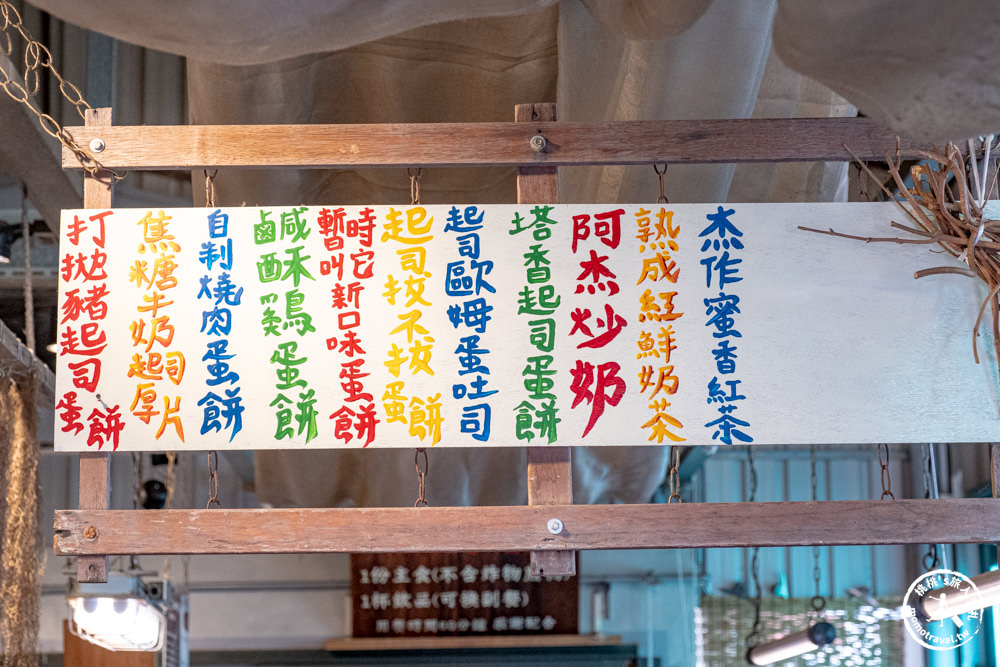 打拋豬起司蛋餅
焦糖牛奶起司厚片
自制燒肉蛋餅
鹹酥雞蛋餅
暫時叫它新口味蛋餅
起司拔不拔蛋餅
起司歐姆蛋吐司
塔香起司蛋餅
阿杰炒奶
熟成紅鮮奶茶
杰作蜜香紅茶
1份主食(不含炸物
1杯飲品(可換副餐)
用餐時間60分鐘 感謝配合
桃桃's旅人手札
momotravel.tw